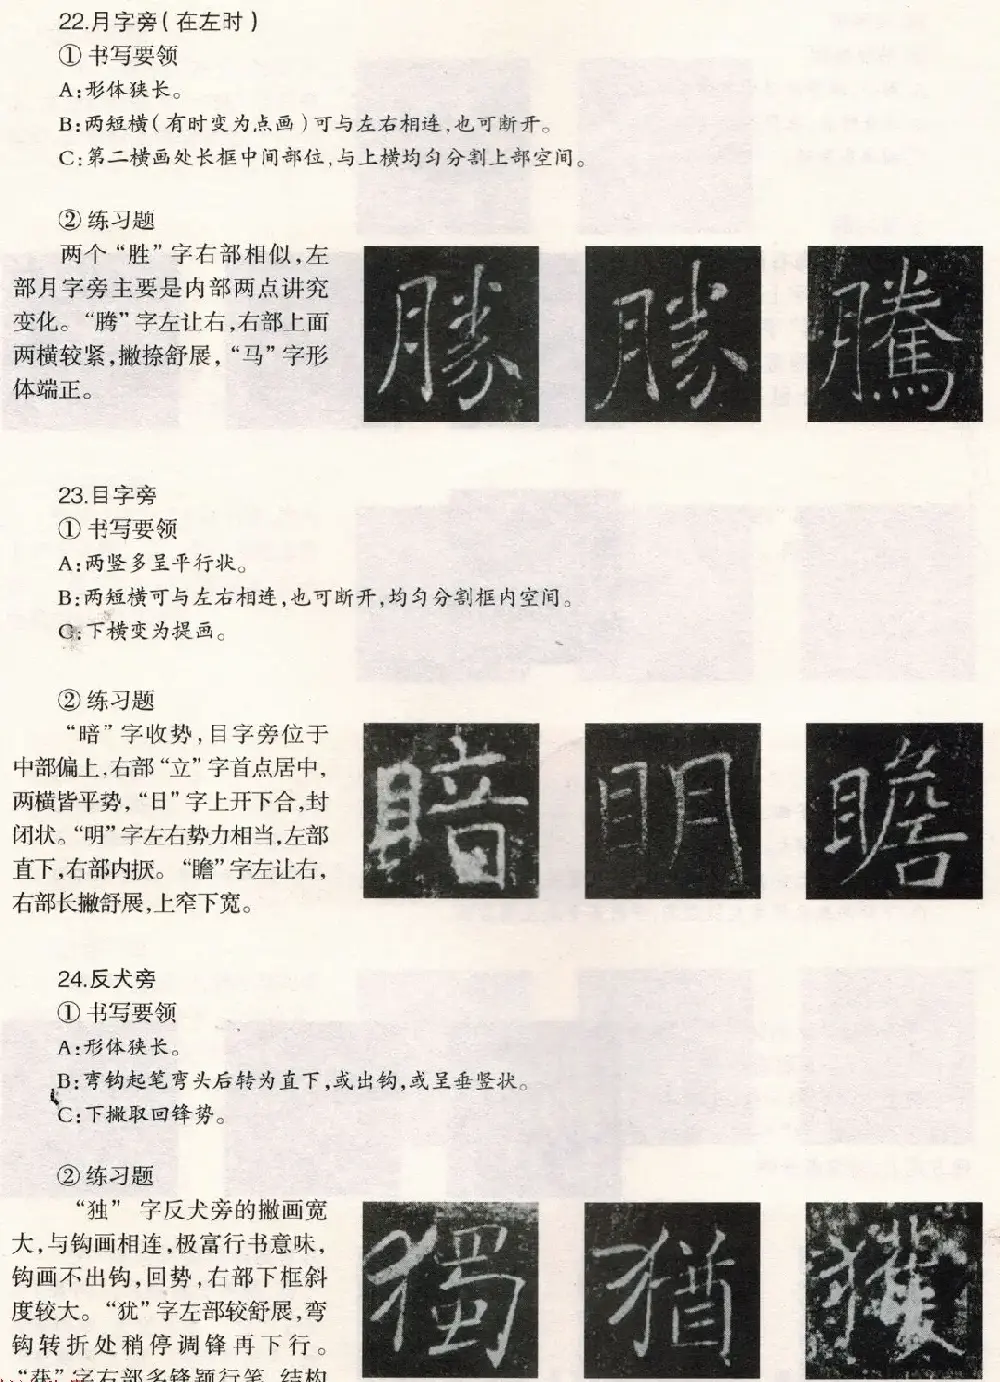 22.月字旁(在左时)
① 书写要领
A:形体狭长。
B:两短横(有时变为点画)可与左右相连,也可断开。
C:第二横画处长框中间部位,与上横均匀分割上部空间。
② 练习题
两个“胜”字右部相似,左
部月字旁主要是内部两点讲究
变化。“腾”字左让右,右部上面
两横较紧,撇捺舒展,“马”字形
体端正。
勝 勝 騰
23.目字旁
① 书写要领
A:两竖多呈平行状。
B:两短横可与左右相连,也可断开,均匀分割框内空间。
C:下横变为提画。
② 练习题
“暗”字收势,目字旁位于
中部偏上,右部“立”字首点居中,
两横皆平势,“日”字上开下合,封
闭状。“明”字左右势力相当,左部
直下,右部内抠。“瞻”字左让右,
右部长撇舒展,上窄下宽。
暗 明 瞻
24.反犬旁
① 书写要领
A:形体狭长。
B:弯钩起笔弯头后转为直下,或出钩,或呈垂竖状。
C:下撇取回锋势。
② 练习题
“独” 字反犬旁的撇画宽
大,与钩画相连,极富行书意味,
钩画不出钩,回势,右部下框斜
度较大。“犹”字左部较舒展,弯
钩转折处稍停调锋再下行。
“获”字右部多锋颖行笔,结构
獨 猶 獲